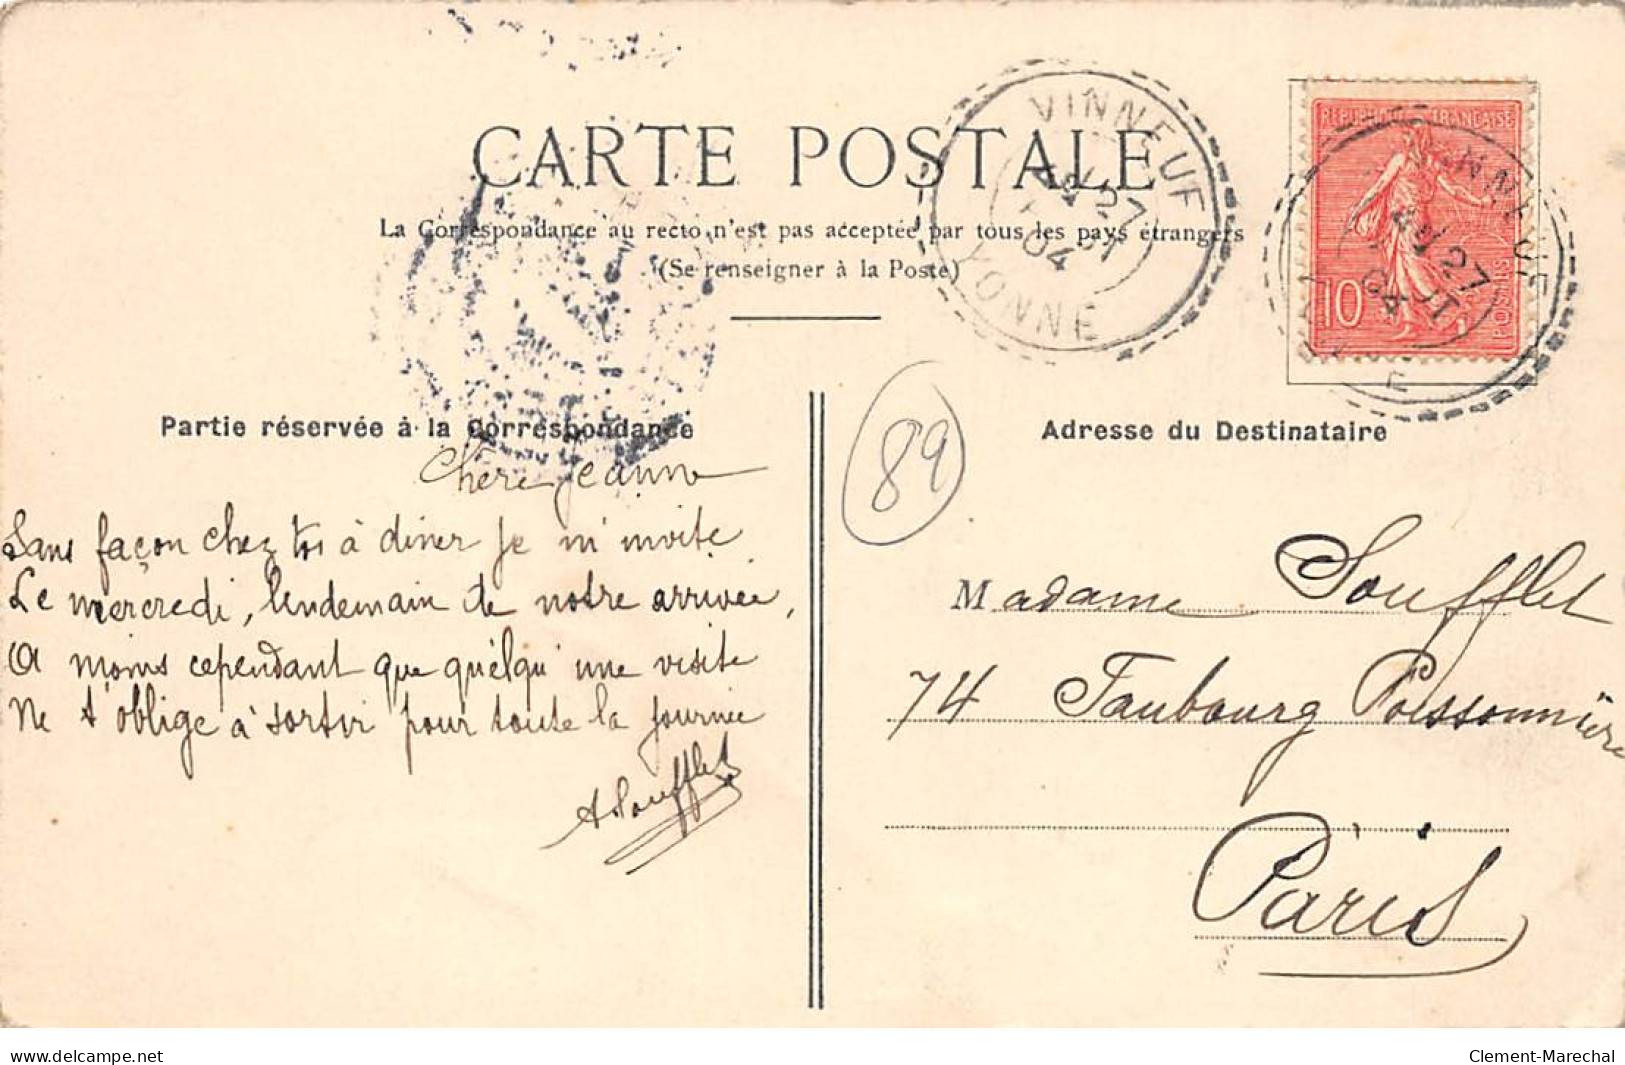 CARTE POSTALE
La Correspondance au recto n'est pas acceptée par tous les pays étrangers
(Se renseigner à la Poste)
VINNEUF
27
AOUT
04
YONNE
REPUBLIQUE FRANÇAISE
10
POSTES
VINNEUF
27
AOUT
04
YONNE
Partie réservée à la Correspondance
Chère Jeanne
Sans façon chez toi à diner je m'invite
Le mercredi, lendemain de notre arrivée,
A moins cependant que quélqu'une visite
Ne t'oblige à sortir pour toute la journée
A Soufflet
89
Adresse du Destinataire
Madame Soufflet
74 Faubourg Poissonnière
Paris
www.delcampe.net
Clement-Marechal